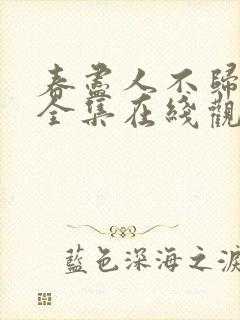 春盡人不歸
全集在綫觀
藍色深海之淚